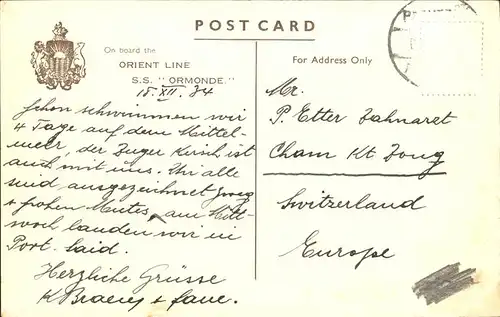 POST CARD
On board the
ORIENT LINE
S.S. "ORMONDE."
15. XII. 34
Schon schwimmen wir
4 Tage auf dem Mittel-
meer, der Zuger Kirsch ist
auch mit uns. Wir alle
sind ausgezeichnet zweg
+ frohen Mutes, am Mitt-
woch landen wir in
Port-Said.
Herzliche Grüsse
K
For Address Only
Mr.
P. Etter Zahnarzt
Cham Kt Zoug
Switzerland
Europe